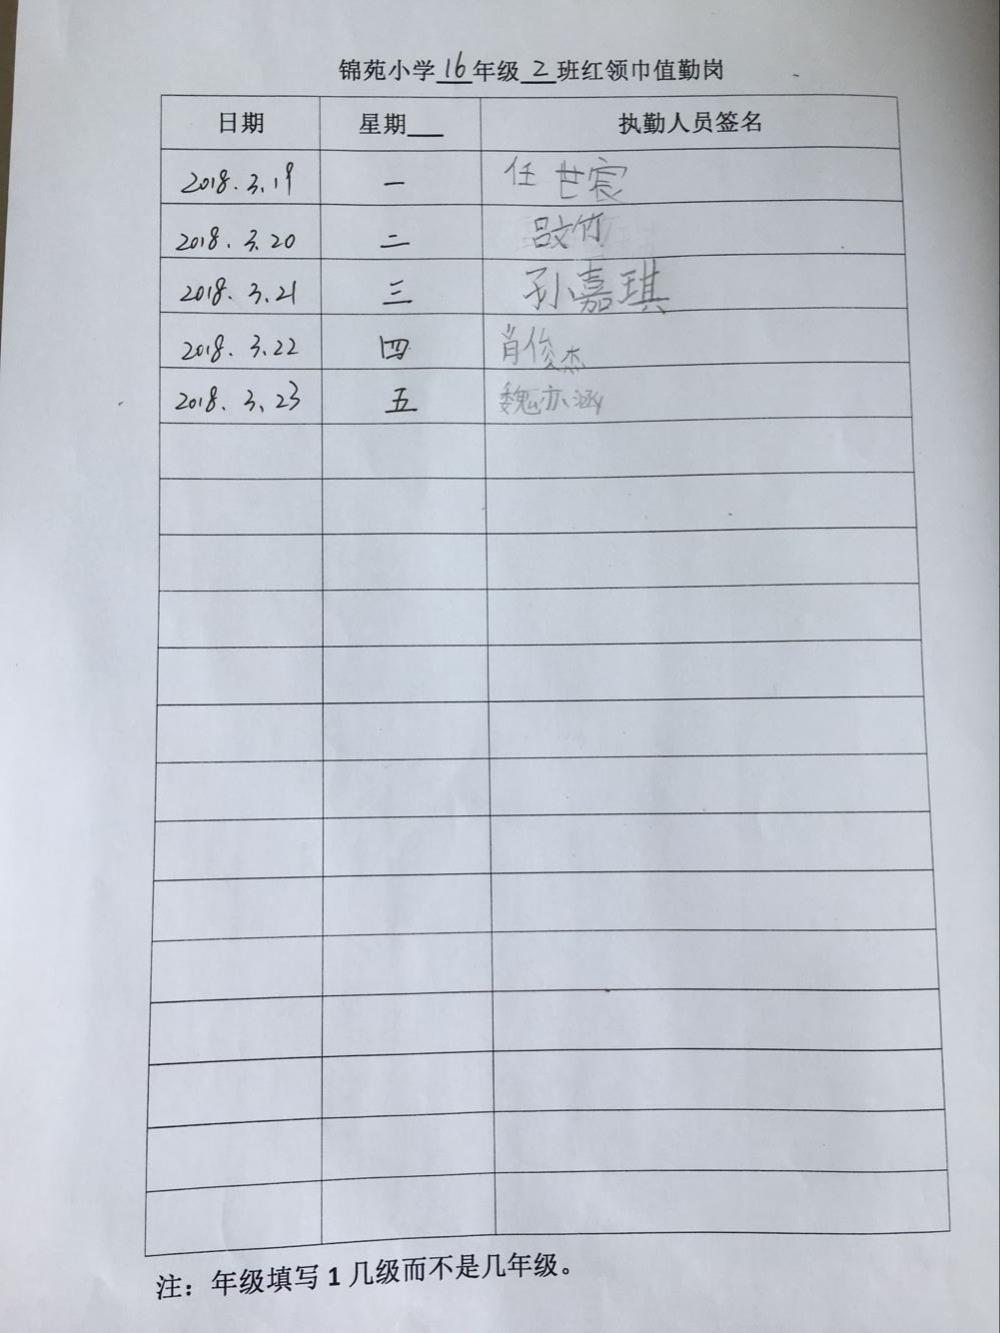 锦苑小学16年级2班红领巾值勤岗
日期 星期___ 执勤人员签名
2018.3.19 一 任世宸
2018.3.20 二 吕文竹
2018.3.21 三 孙嘉琪
2018.3.22 四 肖俊杰
2018.3.23 五 魏亦涵
注：年级填写1几级而不是几年级。